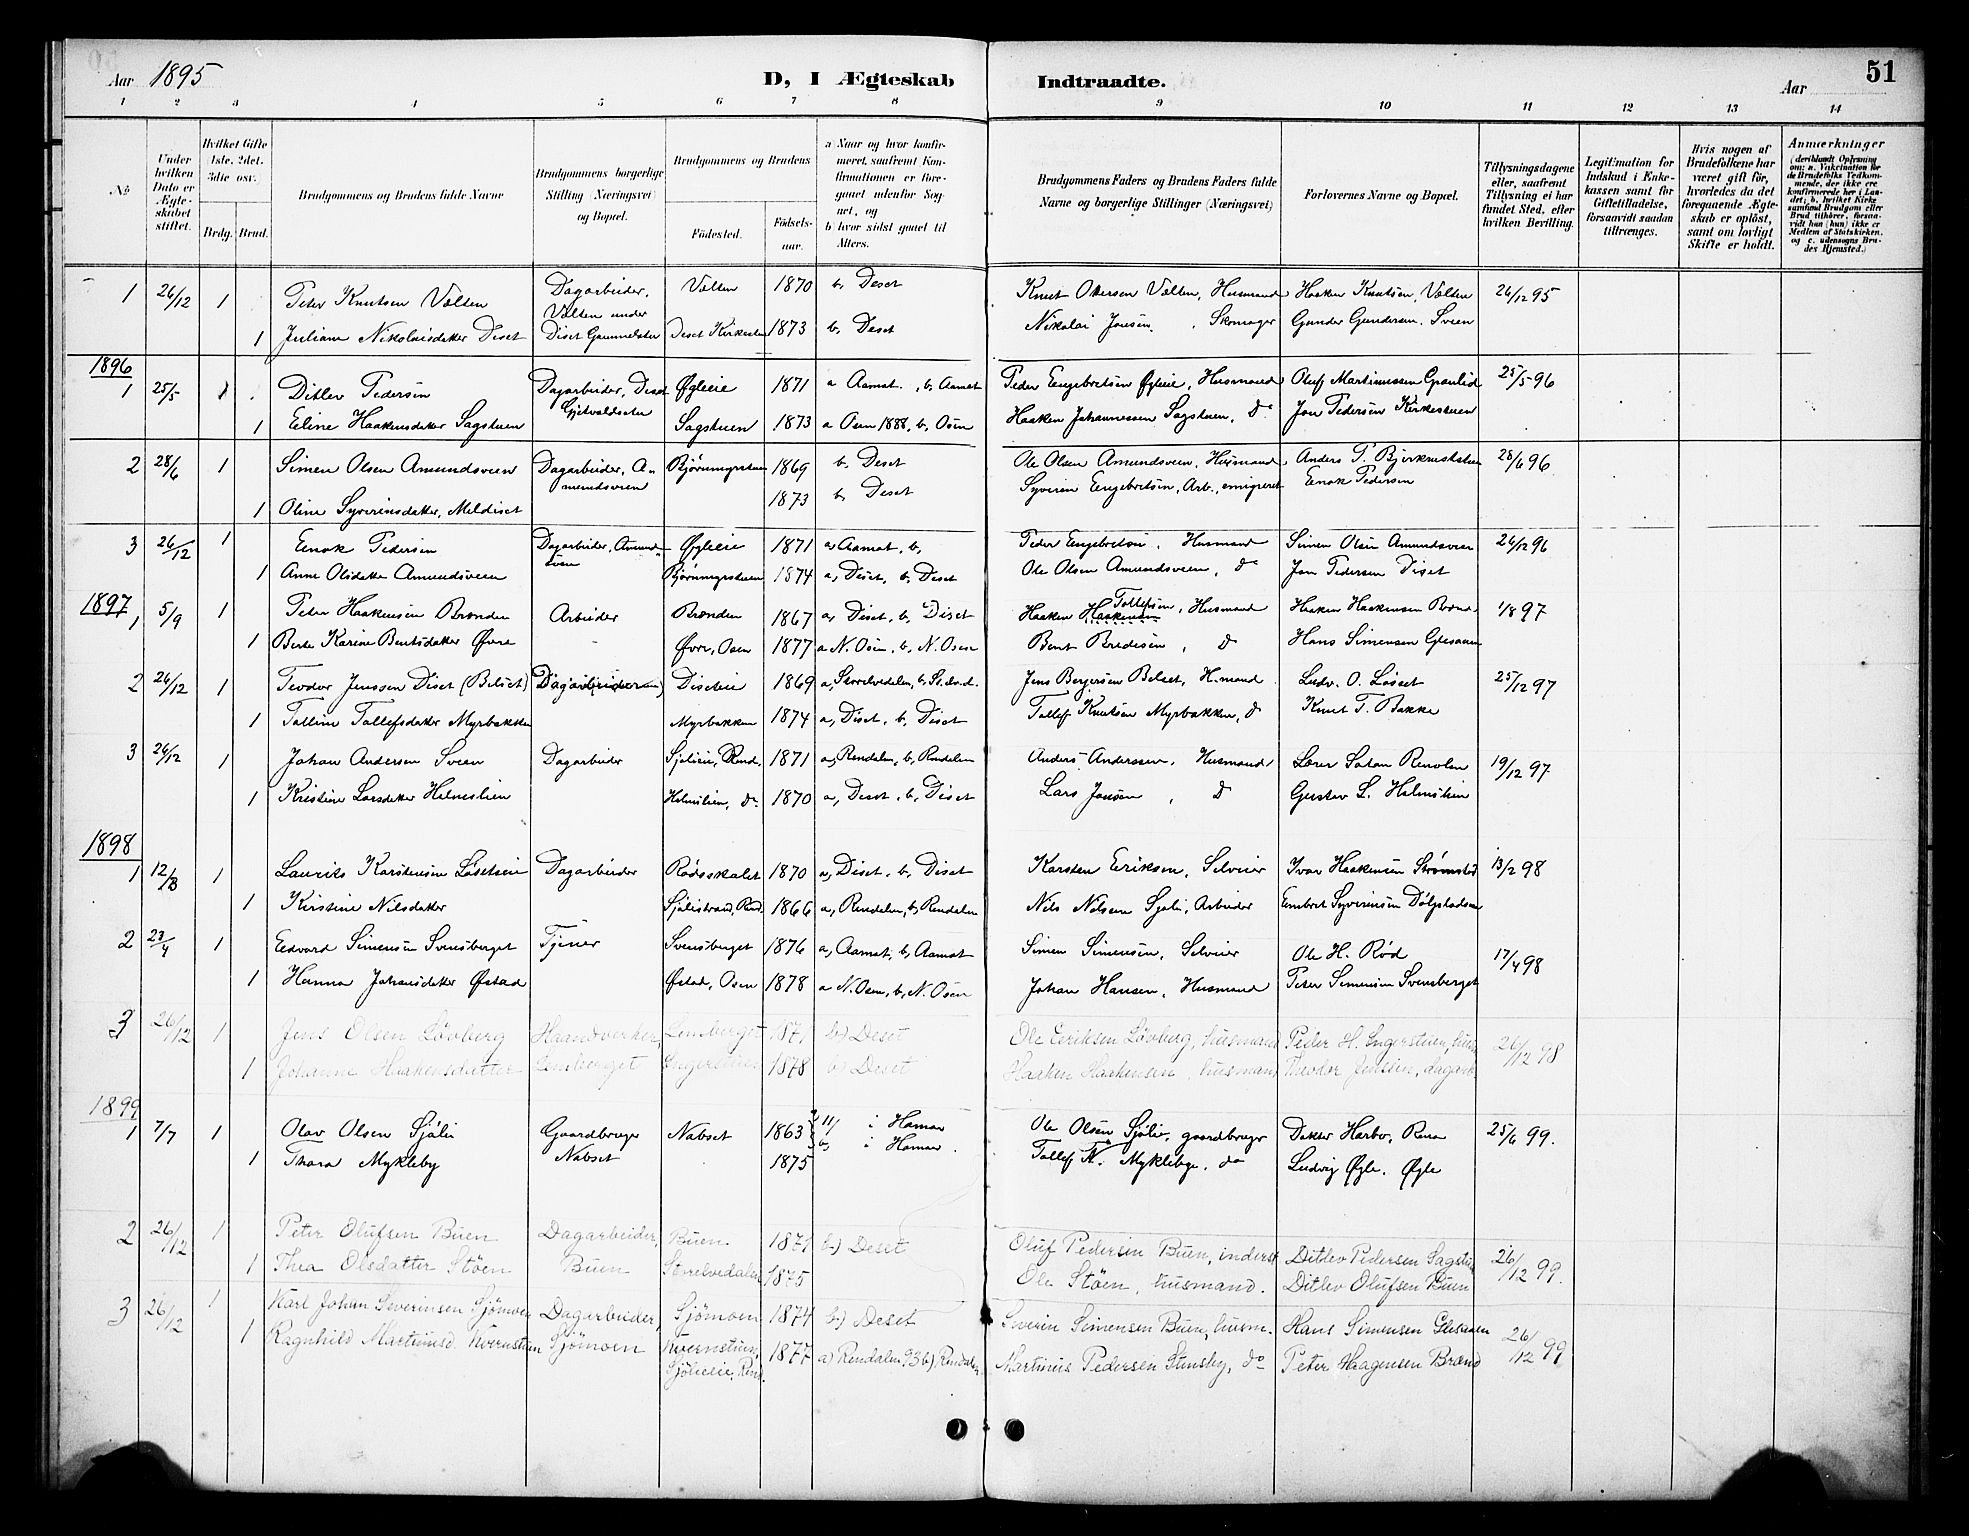 Aar 1895
D, I Ægteskab Indtraadte.
Aar
51
1 2 3 4 5 6 7 8 9 10 11 12 13 14
№
Under hvilken Dato er Ægteskabet stiftet.
Hvilket Gifte 1ste. 2det. 3die osv.
Brdg. Brud.
Brudgommens og Brudens fulde Navne
Brudgommens borgerlige Stilling (Næringsvei) og Bopæl.
Brudgommens og Brudens
Fødested.
Fødselsaar.
a Naar og hvor konfirmeret, saafremt Konfirmationen er foregaaet udenfor Sognet, og
b hvor sidst gaaet til Alters.
Brudgommens Faders og Brudens Faders fulde Navne og borgerlige Stillinger (Næringsvei)
Forlovernes Navne og Bopæl.
Tillysningsdagene eller, saafremt Tillysning ei har fundet Sted, efter hvilken Bevilling.
Legitimation for Indskud i Enkekassen samt for Giftetilladelse, forsaavidt saadan tiltrænges.
Hvis nogen af Brudefolkene har været gift før, hvorledes da det foregaaende Ægteskab er opløst, samt om lovligt Skifte er holdt.
Anmærkninger
1 26/12 1 Peter Knutsen Vollen Dagarbeider, Vollen 1870 b, Deset Knut Ottersen Vollen, Husmand Haaken Knutsen, Vollen 26/12 95
Vollen under
1 Juliane Nikolaisdatter Diset Diset Gammelsæter Deset Kirkesten 1873 b, Deset Nikolai Jonsen, Skomager Gunder Gundersen, Sveen
1896
1 25/5 1 Ditlev Pedersen Dagarbeider, Diset Øgleie 1871 a Aamot, b, Aamot Peder Engebretsen Øgleie, Husmand Oluf Martinussen Granlid 25/5 96
1 Eline Haakensdatter Sagstuen Sagstuen 1873 a Osen 1888, b, Osen Haaken Johannessen Sagstuen, do Jon Pedersen Kirkestuen
2 28/6 1 Simen Olsen Amundsveen Dagarbeider, Amundsveen Bjørnmyrstuen 1869 b, Deset Ole Olsen Amundsveen, Husmand Anders P. 28/6 96
1 Oline Syverinsdatter, Meldiset 1873 b, Deset Syverin Engebretsen, Arb., emigreret Enok Pedersen
3 26/12 1 Enok Pedersen Dagarbeider, Amundsveen Øgleie 1871 a, Aamot, b, Peder Engebretsen, Husmand Simen Olsen Amundsveen 26/12 96
1 Anne Olsdatter Amundsveen Bjørnmyrstuen 1874 a, Diset, b, Deset Ole Olsen Amundsveen, do Jon Pedersen Diset
1897
1 5/9 1 Peter Haakensen Brænden Arbeider Brænden 1867 a, Diset, b, Diset Haaken Tollefsen, Husmand Haaken Haakensen 1/8 97
1 Berte Karine Berntsdatter Øvre Øvre, Osen 1877 a N. Osen, b, N. Osen Bernt Bredesen, do Hans Simensen Glesaaen
2 26/12 1 Teodor Jenssen Diset (Belset) Dagarbeider Diseteie 1869 a, Storelvedalen, b, St.elv.d. Jens Bergersen Belset, H.mand Ludv. O. Løset 25/12 97
1 Tolline Tollefsdatter Myrbakken Myrbakken 1874 a, Diset, b, Diset Tollef Knutsen Myrbakken, do Knut T. Bakke
3 26/12 1 Johan Andersen Sveen Dagarbeider Sjølieie, Rend. 1871 a, Rendalen, b, Rendalen Anders Anderssen, Husmand 19/12 97
1 Kristine Larsdatter Holmslien Holmslien, do 1870 a, Deset, b, Diset Lars Jonsen, do Gustav L. Holmslien
1898
1 12/3 1 Laurits Karstensen Løseteie Dagarbeider Rødsskalet 1870 a, Diset, b, Diset Karsten Eriksen, Selveier Ivar Haakensen Strømstad 13/2 98
1 Kirstine Nilsdatter Sjølistrand, Rend. 1866 a, Rendalen, b, Rendalen Nils Nilsen Sjøli, Arbeider Embret Syverinsen
2 23/4 1 Edvard Simensen Svensberget Tjener Svensberget 1876 a, Aamot, b, Aamot Simen Simensen, Selveier Ole H. Rød 17/4 98
1 Hanna Johansdatter Østad Østad, Osen 1878 a N. Osen, b, N. Osen Johan Hansen, Husmand Peter Simensen Svensberget
3 26/12 1 Jens Olsen Løvberg Haandverker, Lemberget 1871 b) Deset Ole Eriksen Løvberg, husmand Peder H. Engerstuen, hus. 26/12 98
1 Johanne Haakensdatter Lemberget 1878 b) Deset Haaken Haakensen, husmand Theodor Jenssen, dagarb.
1899
1 7/7 1 Olav Olsen Sjøli Gaardbruger Nabset 1863 i Hamar Ole Olsen Sjølie, gaardbruger Doktor Harbo, Rena 25/6 99.
1 Thora Mykleby Nabset 1875 b, i Hamar. Tollef K. Myklebye, do Ludvig Øgle. Øgle
2 26/12 1 Peter Olufsen Buen Dagarbeider, Buen. 1871 b.) Deset Oluf Pedersen Buen, inderst Ditlev Pedersen Sagstu. 26/12 99.
1 Thea Olsdatter Støen Buen Storelvedalen 1875 Ole Støen, husmand. Ditlev Olufsen Buen
3 26/12 1 Karl Johan Severinsen Sjømoen Dagarbeider, Sjømoen 1874 b.) Deset Severin Simensen Buen, husm. Hans Simensen Glesaaen 26/12 99
1 Ragnhild Martinusd. Kvernstuen Sjømoen Kvernstuen, Sjølieie, Rend. 1877 a) Rendalen 93 b) Rendalen Martinus Pedersen Stensby, do Peter Haagensen Brænd